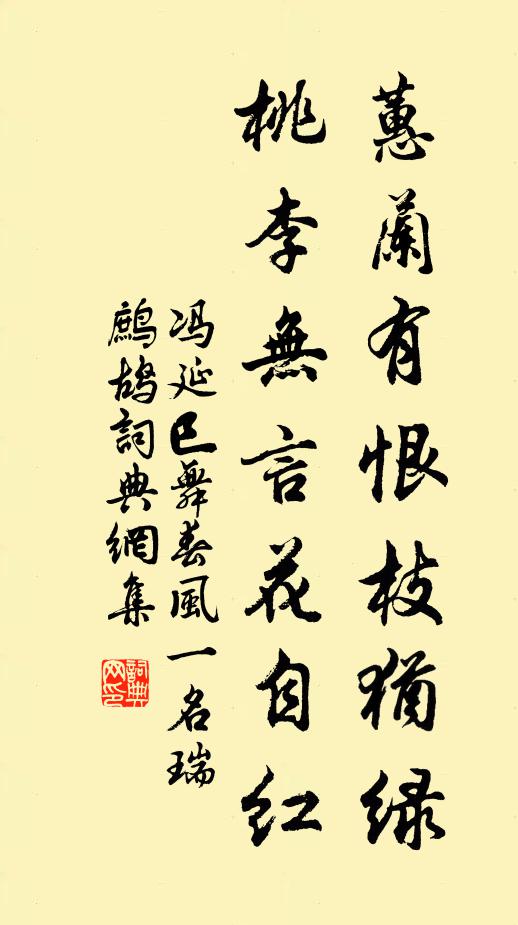 蕙蘭有恨枝猶緑
桃李無言花自红
冯延巳舞春風一名瑞
鷓鴣詞典網集
詞典
网印